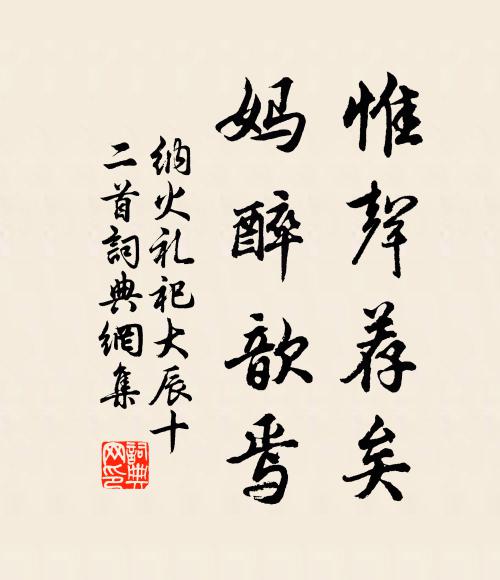 惟聲荐矣
妈醉歆焉
納火礼祀大辰十
二首詞典網集
詞典
网印